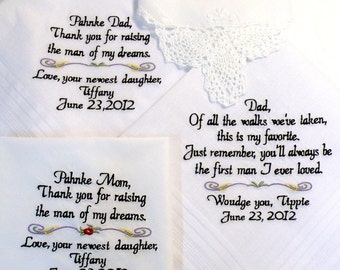 Pahnke Dad,
Thank you for raising
the man of my dreams.
Love, your newest daughter,
Tiffany
June 23, 2012
Dad,
Of all the walks we've taken,
this is my favorite.
Just remember, you'll always be
the first man I ever loved.
Woudge you, Tippie
June 23, 2012
Pahnke Mom,
Thank you for raising
the man of my dreams.
Love, your newest daughter,
Tiffany
June 23, 2012